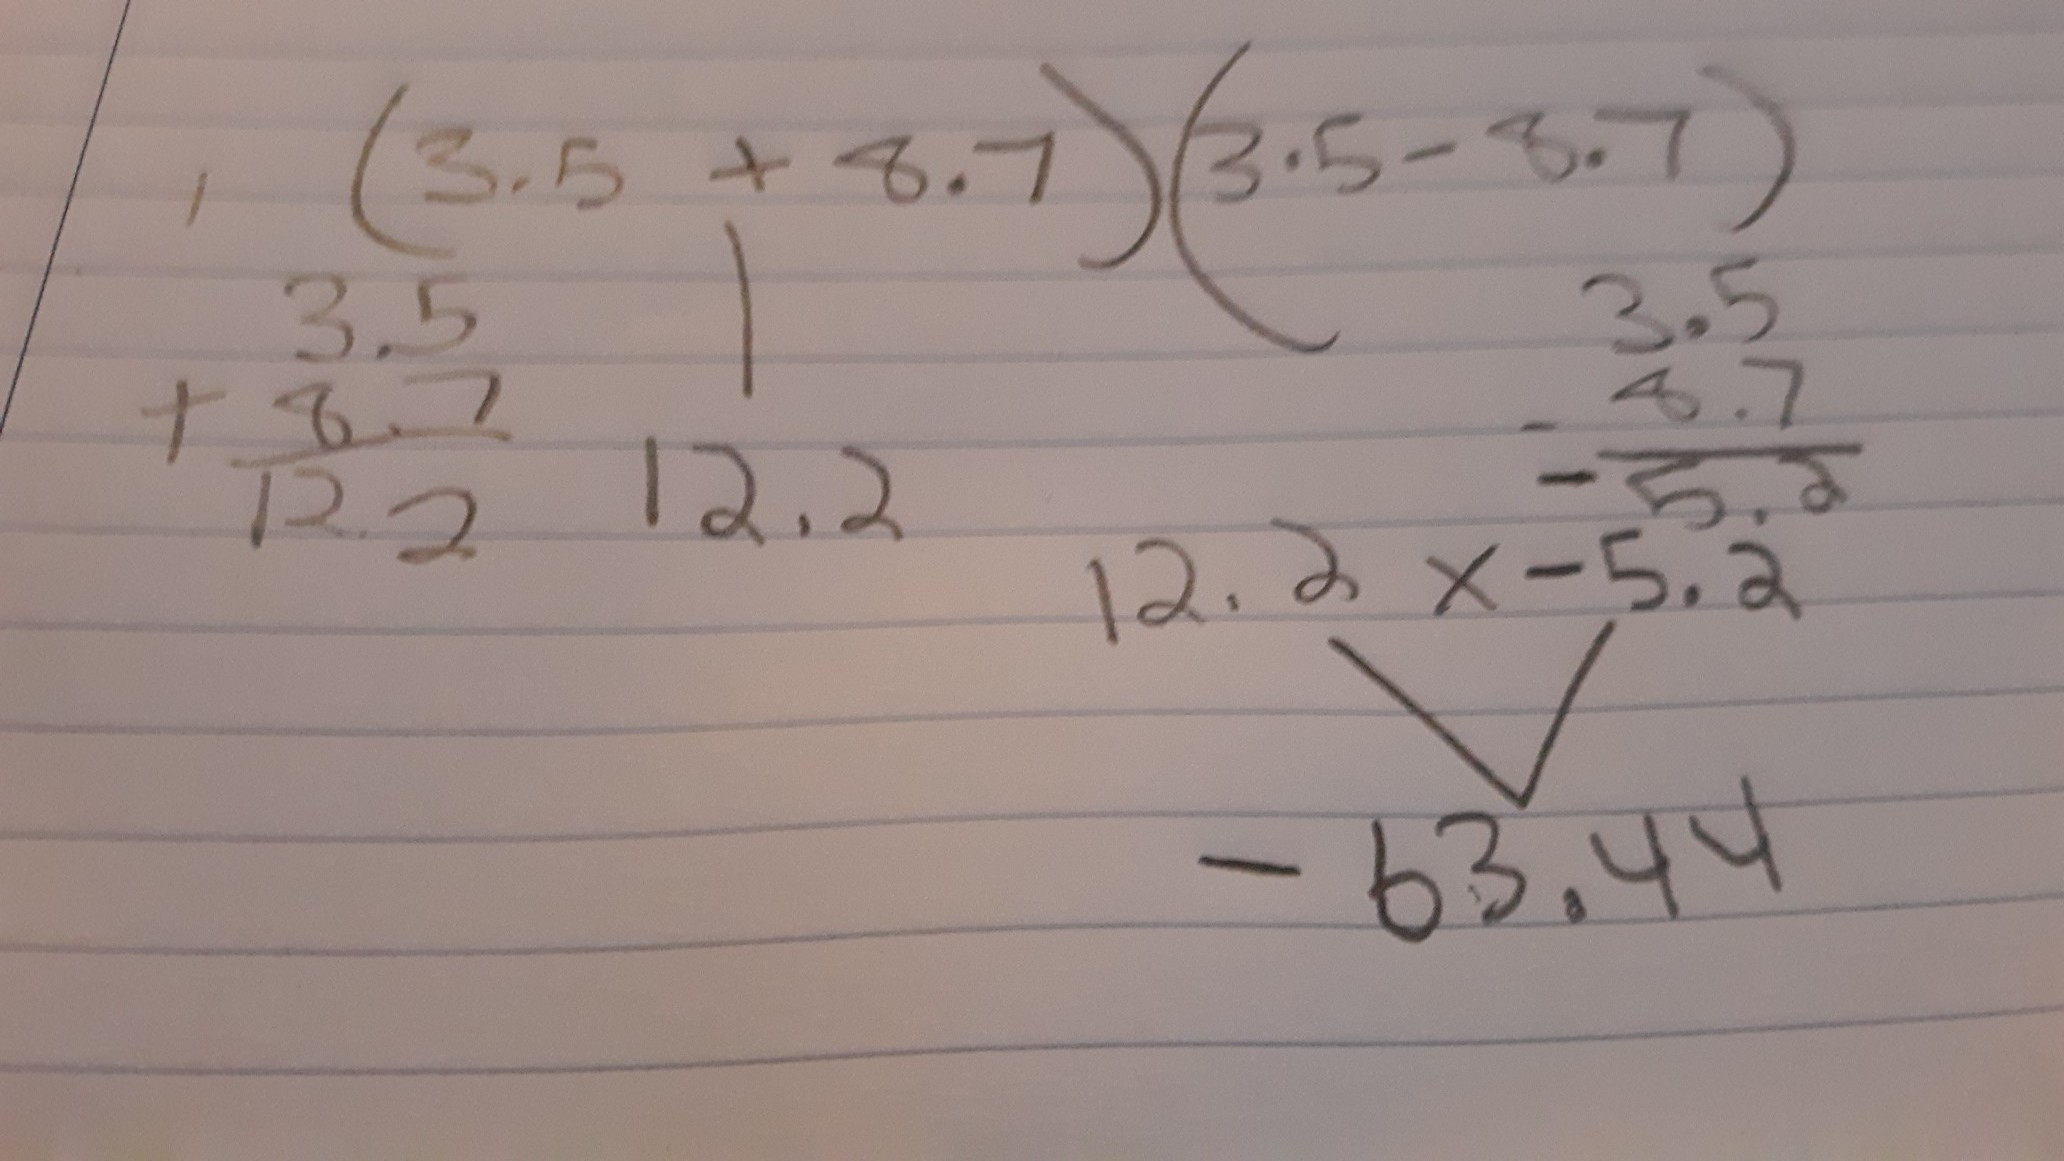 (3.5 + 8.7)(3.5 - 8.7)
3.5
+ 8.7
12.2
12.2
3.5
- 8.7
- 5.2
12.2 x -5.2
- 63.44